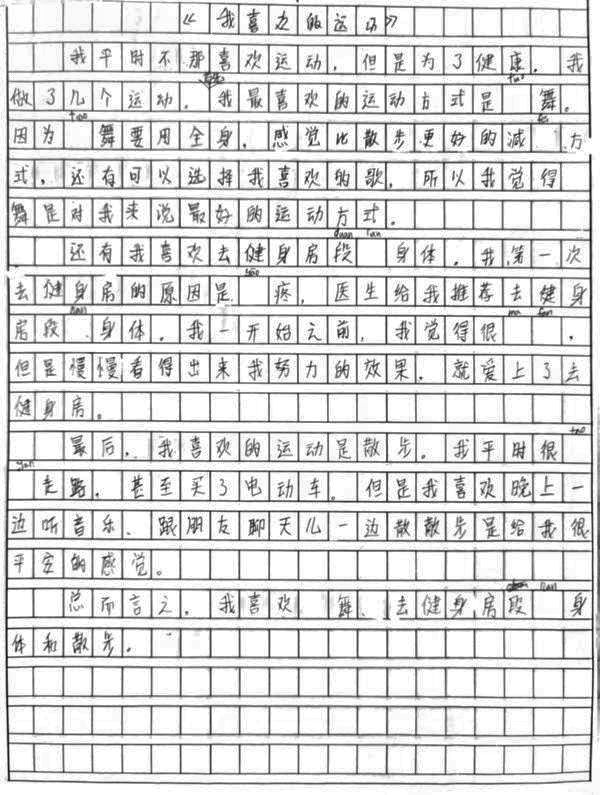 《我喜欢的运动》
我平时不那喜欢运动，但是为了健康，我
做了几个运动。我最喜欢的运动方式是 舞。
因为 舞要用全身，感觉比散步更好的减 方
式，还有可以选择我喜欢的歌，所以我觉得
舞是对我来说最好的运动方式。
还有我喜欢去健身房段 身体。我第一次
去健身房的原因是 疼，医生给我推荐去健身
房段 身体。我一开始之前，我觉得很 ，
但是慢慢看得出来我努力的效果，就爱上了去
健身房。
最后，我喜欢的运动是散步。我平时很 tao
yan 走路，甚至买了电动车。但是我喜欢晚上一
边听音乐、跟朋友聊天儿一边散散步是给我很
平安的感觉。
总而言之，我喜欢 舞、去健身房段 身
体和散步。